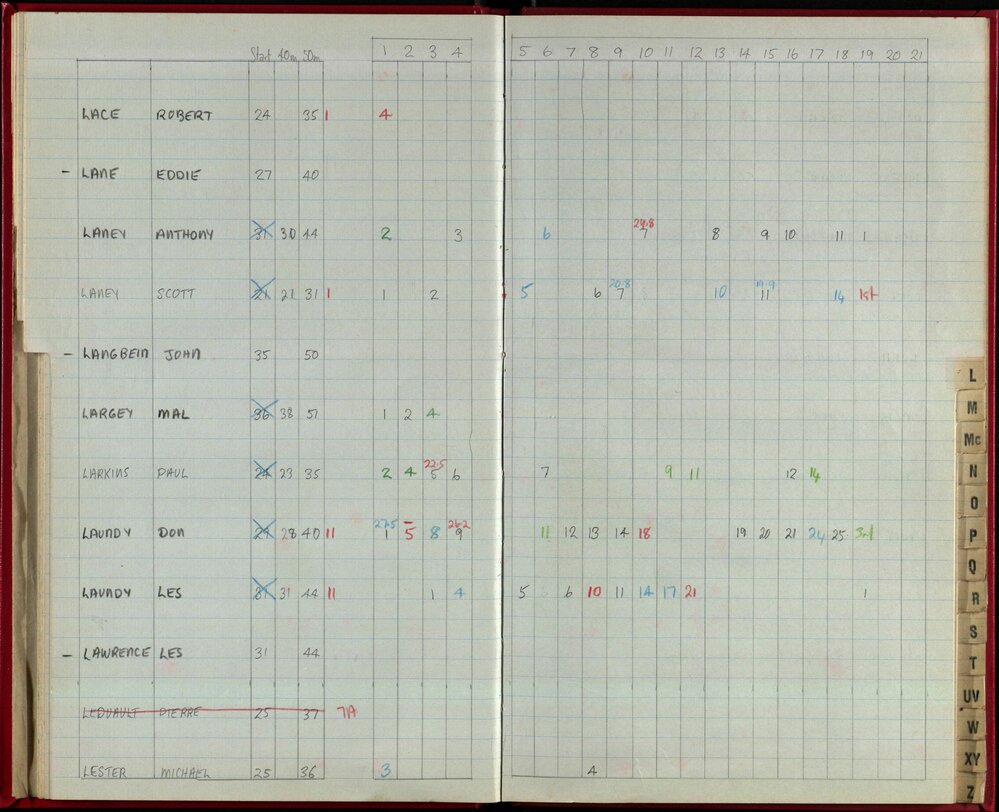 Start 40m 50m 1 2 3 4 5 6 7 8 9 10 11 12 13 14 15 16 17 18 19 20 21
LACE ROBERT 24 35 1 4
- LANE EDDIE 27 40
24.8
LANEY ANTHONY 31 30 44 2 3 6 7 8 9 10 11 1
20.8 19.9
LANEY SCOTT 21 21 31 1 1 2 5 6 7 10 11 14 1st
- LANGBEIN JOHN 35 50
LARGEY MAL 36 38 51 1 2 4
22.5
LARKINS PAUL 24 23 35 2 4 5 6 7 9 11 12 14
27.5 26.2
LAUNDY DON 29 28 40 11 1 5 8 9 11 12 13 14 18 19 20 21 24 25 3rd
LAUNDY LES 31 31 44 11 1 4 5 6 10 11 14 17 21 1
- LAWRENCE LES 31 44
LEDUAULT PIERRE 25 37 7A
LESTER MICHAEL 25 36 3 4
L
M
Mc
N
O
P
Q
R
S
T
UV
W
XY
Z